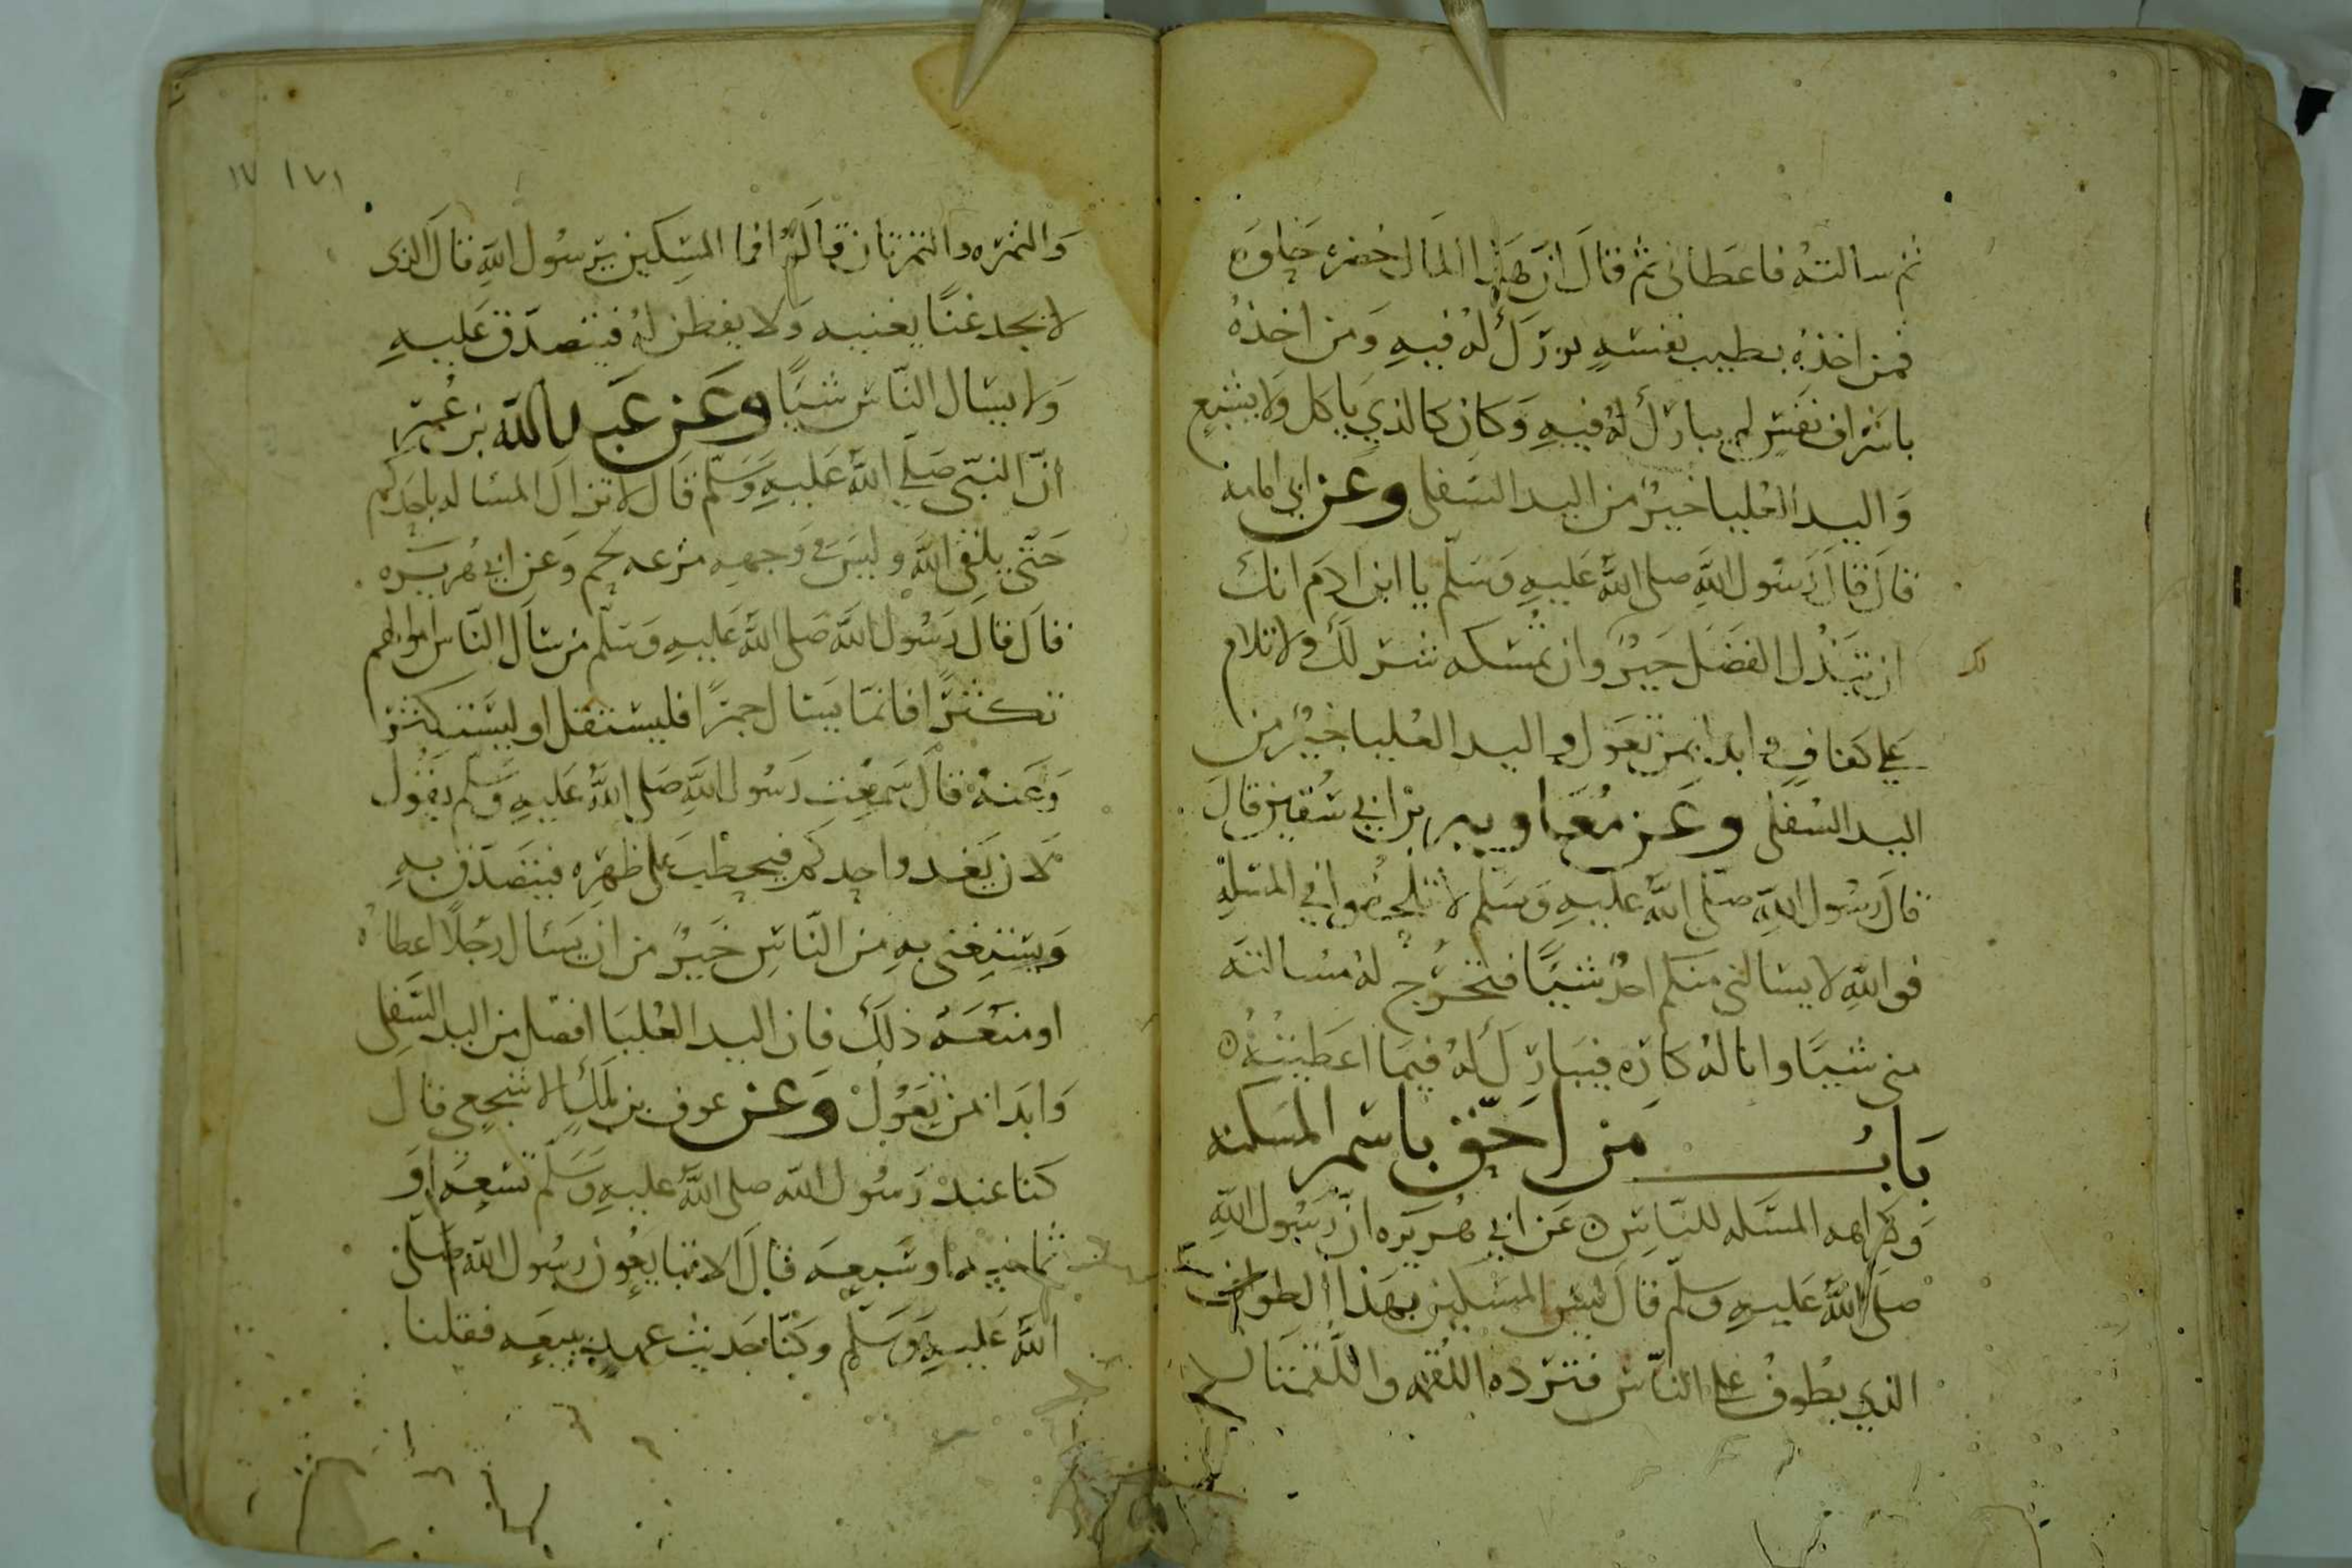 ثم سالته فاعطاني ثم قال ان هذا المال خضره حلوه
فمن اخذه بطيب نفسه بورك له فيه ومن اخذه
باشراف نفس لم يبارك له فيه وكان كالذي ياكل ولا يشبع
واليد العليا خير من اليد السفلى وعن ابي امامه
قال قال رسول الله صلى الله عليه وسلم يا ابن ادم انك
ان تبذل الفضل خير وان تمسكه شر لك ولا تلام
لك
على كفاف وابدا بمن تعول واليد العليا خير من
اليد السفلى وعن معاويه بن ابي سفين قال
قال رسول الله صلى الله عليه وسلم لا تلحفوا في المسله
فوالله لا يسالني منكم احد شيئا فتخرج له مسالته
مني شيئا وانا له كاره فيبارك له فيما اعطيته
باب من احق باسم المسكنه
وكراهه المسله للناس عن ابي هريره ان رسول الله
صلى الله عليه وسلم قال ليس المسكين بهذا الطواف
الذي يطوف على الناس فترده اللقمه واللقمتان
١٧١ ١٧
والتمره والتمرتان قالو افما المسكين يرسول الله قال الذي
لا يجد غنا يغنيه ولا يفطن له فيتصدق عليه
ولا يسال الناس شيئا وعن عبد الله بن عمر
ان النبي صلى الله عليه وسلم قال لا تزال المساله باحدكم
حتى يلقى الله وليس في وجهه مزعه لحم وعن ابي هريره
قال قال رسول الله صلى الله عليه وسلم من سال الناس اموالهم
تكثرا فانما يسال جمرا فليستقل او ليستكثر
وعنه قال سمعت رسول الله صلى الله عليه وسلم يقول
لان يغدوا احدكم فيحطب على ظهره فيتصدق به
ويستغني به من الناس خير من ان يسال رجلا اعطاه
او منعه ذلك فان اليد العليا افضل من اليد السفلى
وابدا بمن تعول وعن عوف بن ملك الاشجعي قال
كنا عند رسول الله صلى الله عليه وسلم تسعه او
ثمانيه او سبعه فقال الا تبايعون رسول الله صلى
الله عليه وسلم وكنا حديث عهد ببيعه فقلنا